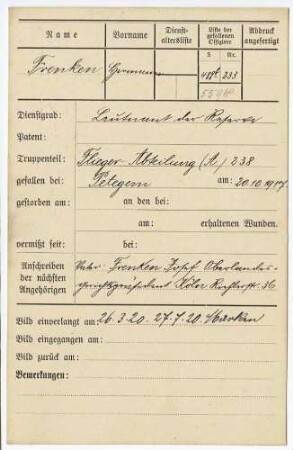 Name Vorname Dienst- altersliste Liste der gefallenen Offiziere Abdruck angefertigt
S Nr.
Frenken Hermann 233
Dienstgrad: Leutnant der Reserve
Patent:
Truppenteil: Flieger Abteilung (A) 238
gefallen bei: Petegem am: 20.10.1917.
gestorben am: an den bei:
am: erhaltenen Wunden.
vermißt seit: bei:
Anschreiben Vater: Frenken Josef Oberlandes-
der nächsten gerichtspräsident Köln 36
Angehörigen
Bild einverlangt am: 26.3.20. 27.7.20. Marken
Bild eingegangen am:
Bild zurück am:
Bemerkungen: